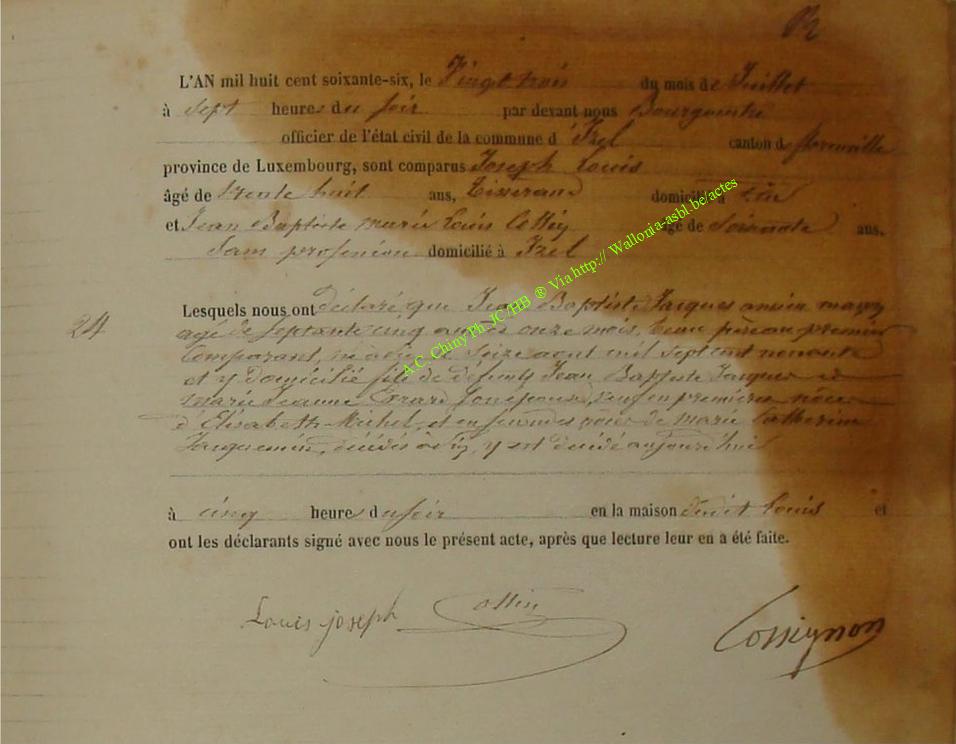 L'AN mil huit cent soixante-six, le Vingt trois du mois de Juillet
à sept heures du soir par devant nous Bourgmestre
officier de l'état civil de la commune d'Izel canton de florenville
province de Luxembourg, sont comparus Joseph Louis
âgé de trente huit ans, Tisserand domicilié à
et Jean Baptiste marie Louis âgé de Soixante ans,
Sans profession domicilié à Izel
24
Lesquels nous ont déclaré que Jean Baptiste Jacques ancien maçon
agé de septante cinq ans onze mois, beau père au premier
Comparant, né Seize aout mil sept cent nonante
et y domicilié fils de défunts Jean Baptiste Jacques et
marie Jeanne veuf en premières noces
d'Elisabeth Michel, et en secondes noces de marie Catherine
Jacquemin, décédés y est décédé aujourd'hui
à cinq heures du soir en la maison dudit Louis et
ont les déclarants signé avec nous le présent acte, après que lecture leur en a été faite.
Louis joseph
A.C. Chiny Ph. JC/HB ® Via http:// Wallonia-asbl.be/actes